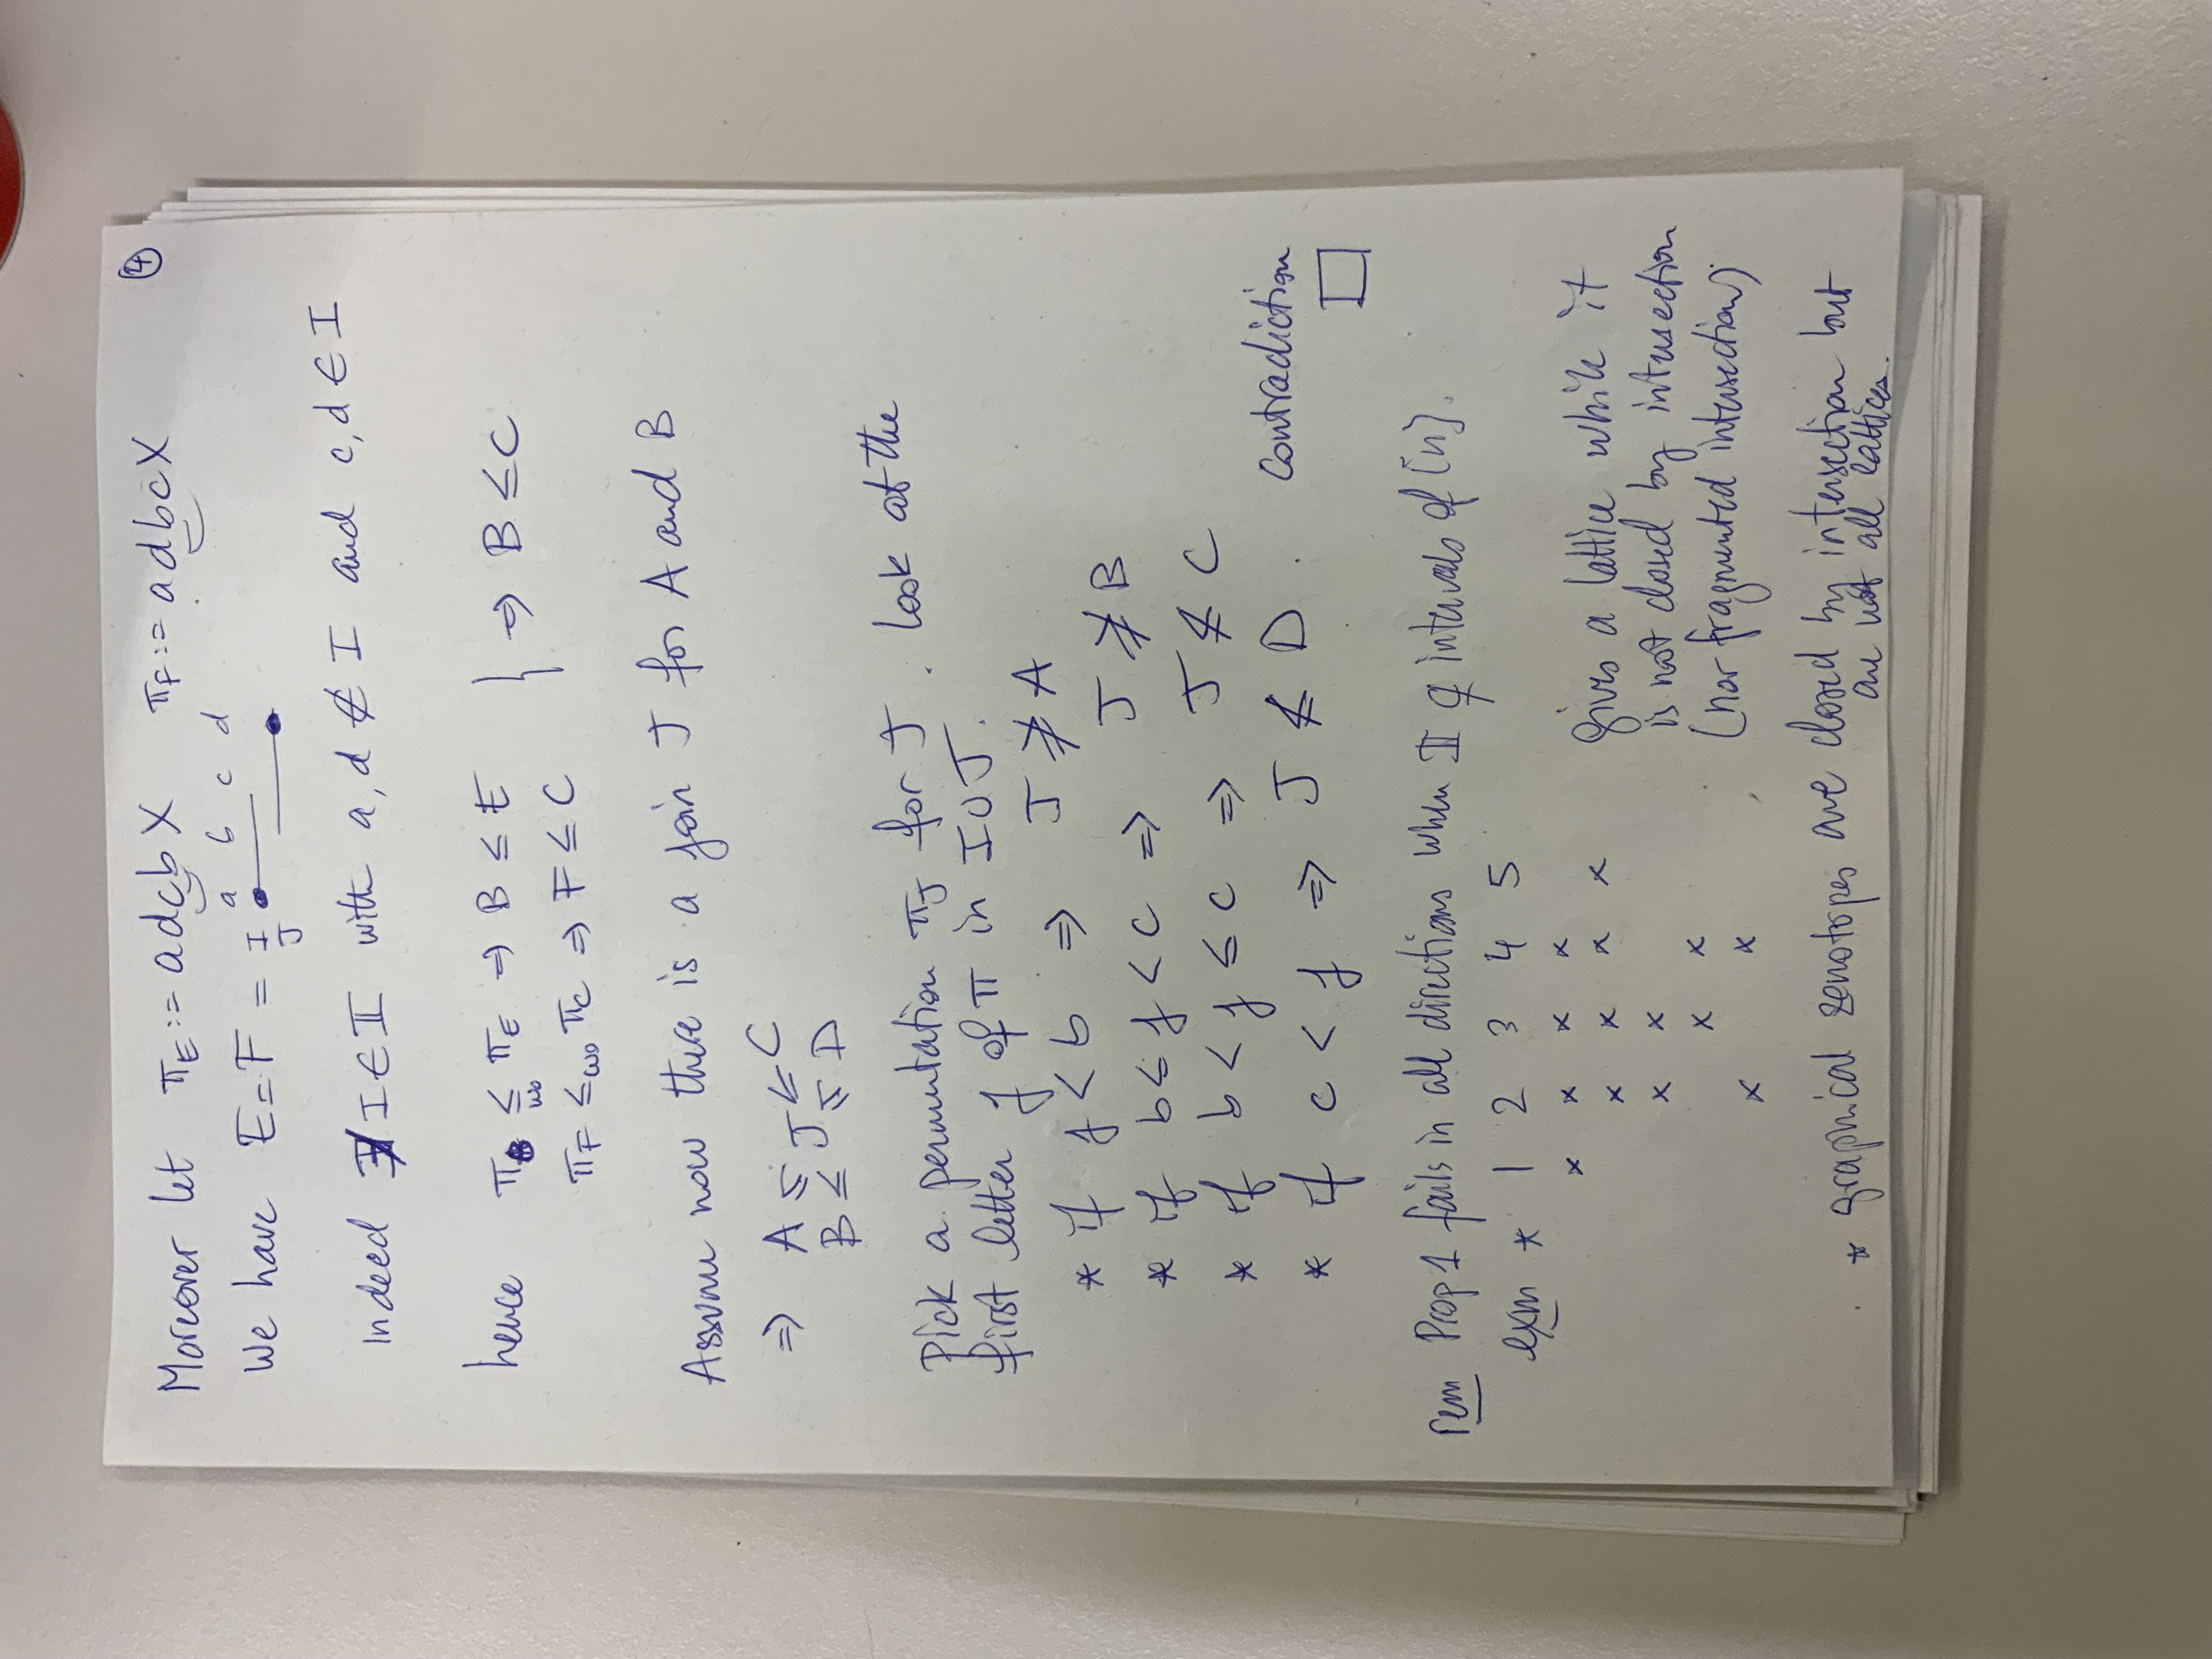 ④
Moreover let π_E := adcbX π_F := adbcX
We have E = F = I J a b c d
Indeed I ∈ 𝕀 with a, d ∉ I and c, d ∈ I
hence π_B ≤_wo π_E ⇒ B ≤ E
π_F ≤_wo π_C ⇒ F ≤ C } ⇒ B ≤ C
Assume now there is a join J for A and B
⇒ A ≤ J ≤ C
B ≤ J ≤ D
Pick a permutation π_J for J. Look at the
first letter j of π in I ∪ J.
* if j < b ⇒ J ≱ A
* if b ≤ j < c ⇒ J ≱ B
* if b < j ≤ c ⇒ J ≰ C
* if c < j ⇒ J ≰ D. contradiction
□
rem Prop 1 fails in all directions when 𝕀 ⊄ intervals of [n].
exm * 1 2 3 4 5
x x x x
x x x x
x x
x x
x x
gives a lattice while it
is not closed by intersection
(nor fragmented intersection)
* graphical zonotopes are closed by intersection but
are not all lattices.